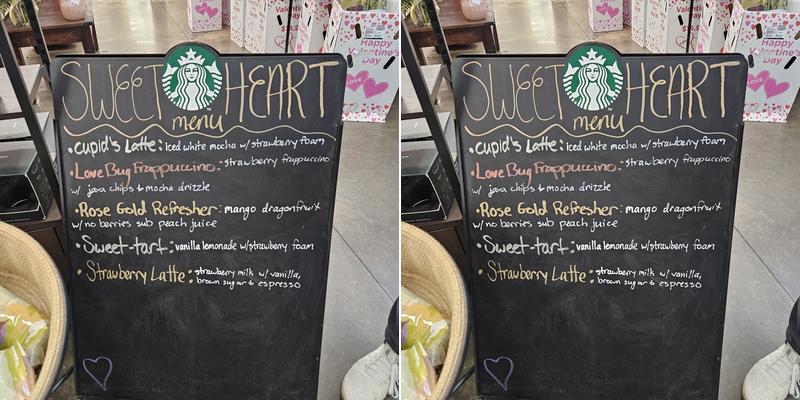 Happy Valentine's Day
LOVE
SWEET HEART
menu
• Cupid's Latte: iced white mocha w/strawberry foam
• Love Bug Frappuccino - strawberry frappuccino
w/ java chips & mocha drizzle
• Rose Gold Refresher: mango dragonfruit
w/no berries sub peach juice
• Sweet-tart: vanilla lemonade w/strawberry foam
• Strawberry Latte: strawberry milk w/ vanilla,
brown sugar & espresso
Happy Valentine's Day
LOVE
SWEET HEART
menu
• Cupid's Latte: iced white mocha w/strawberry foam
• Love Bug Frappuccino - strawberry frappuccino
w/ java chips & mocha drizzle
• Rose Gold Refresher: mango dragonfruit
w/no berries sub peach juice
• Sweet-tart: vanilla lemonade w/strawberry foam
• Strawberry Latte: strawberry milk w/ vanilla,
brown sugar & espresso